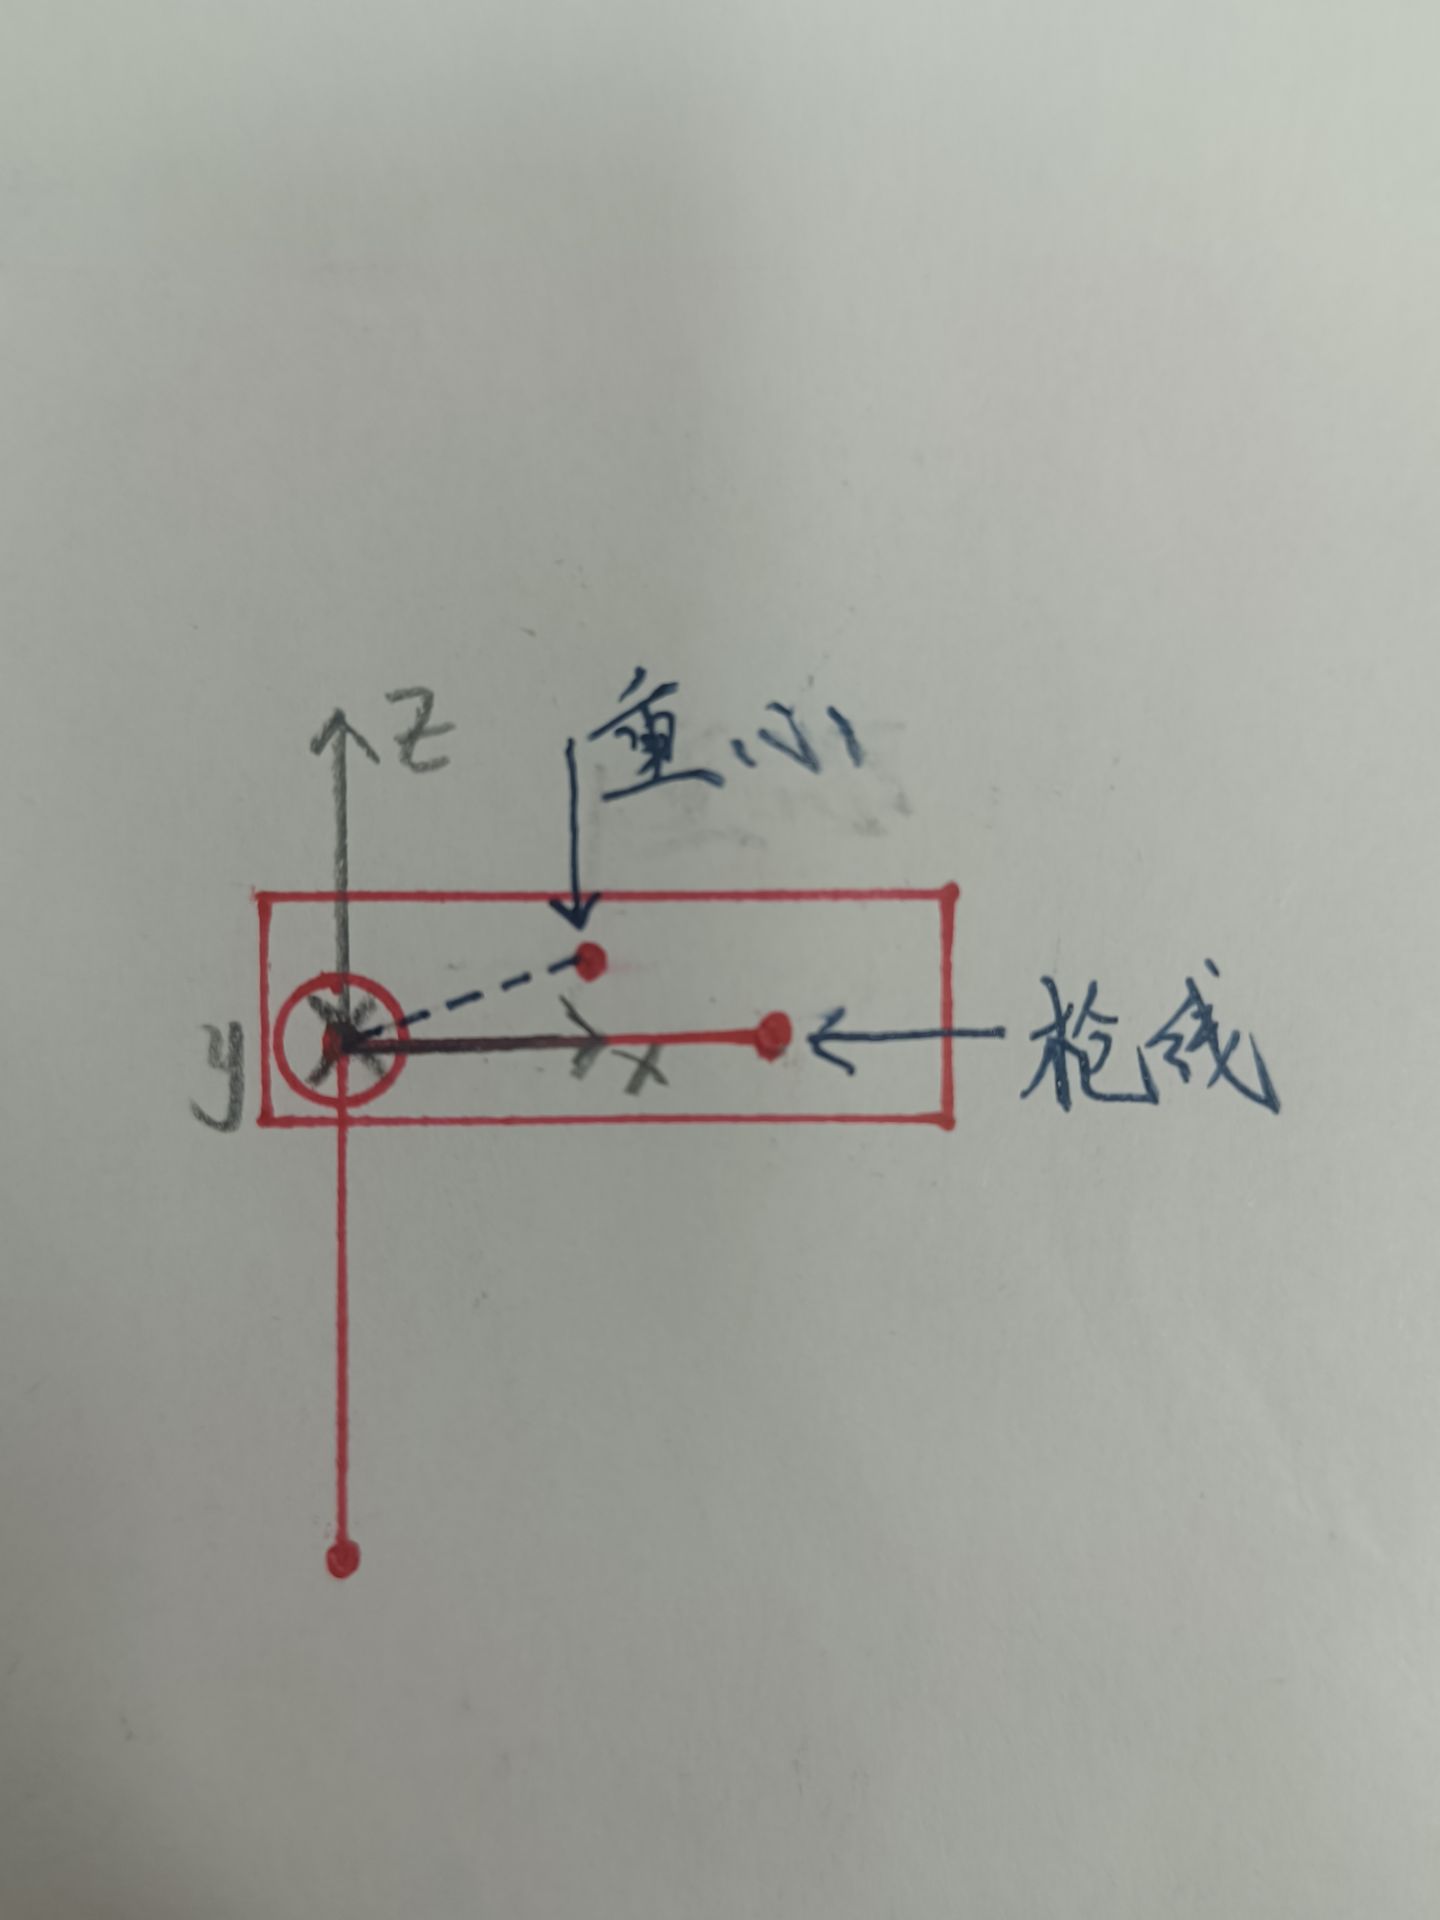 z
重心
y
x
枪线